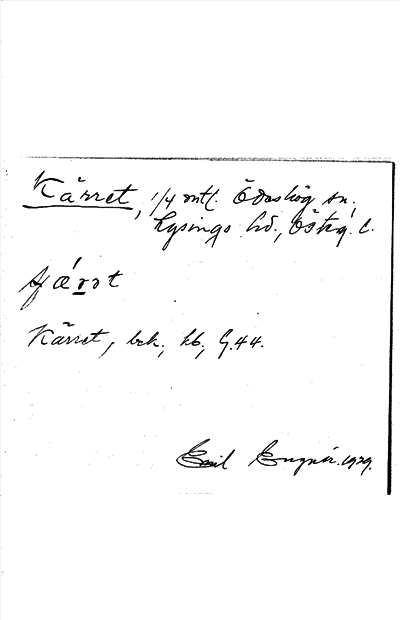 Kärret, 1/4 mtl. Ödeshög sn,
Lysings hd., Östg. l.
Kärret, bek., kb, G.44.
Emil Engnér. 1929.